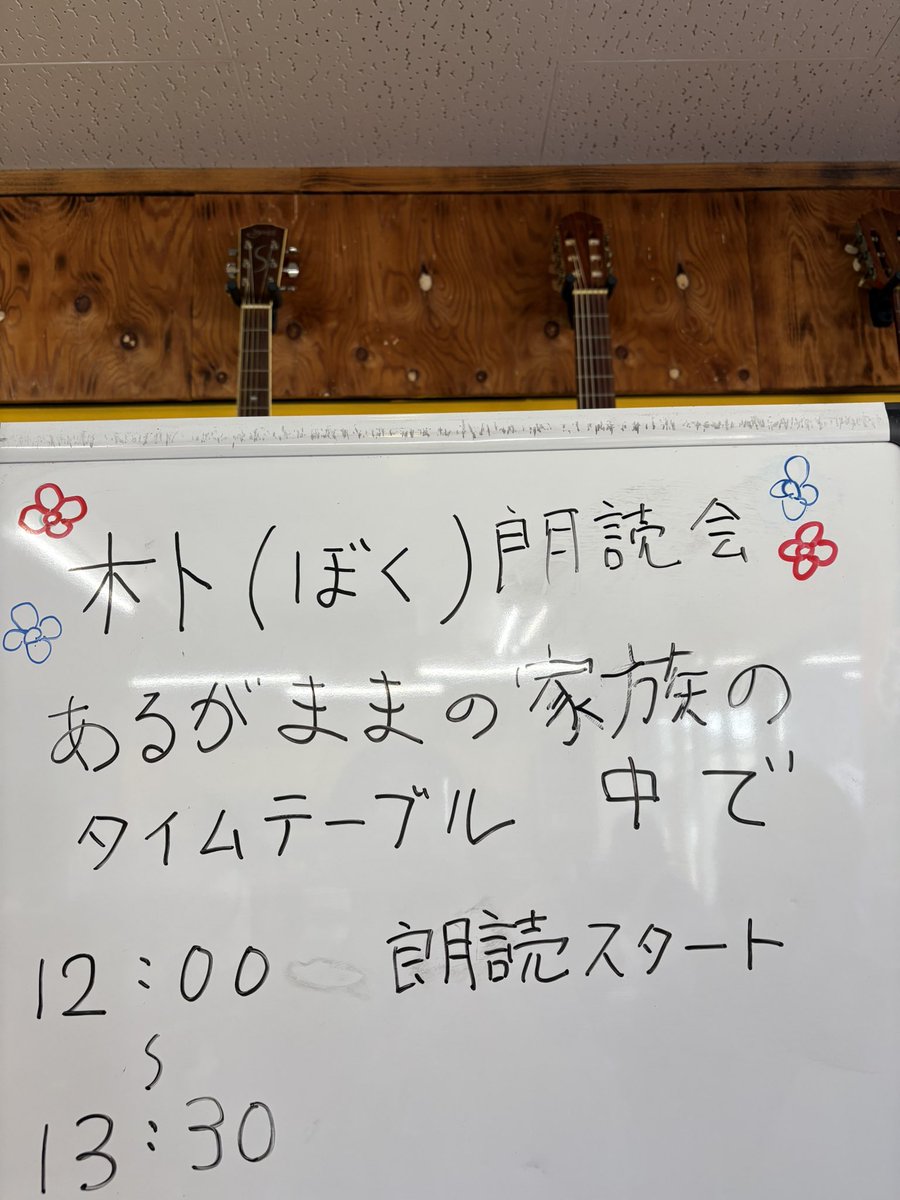 木卜(ぼく)朗読会
あるがままの家族の
中で
タイムテーブル
12:00 朗読スタート
〜
13:30